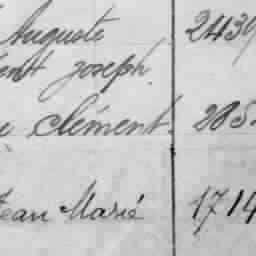 Auguste 2439
Joseph
Clément. 285
Jean Marie 1714